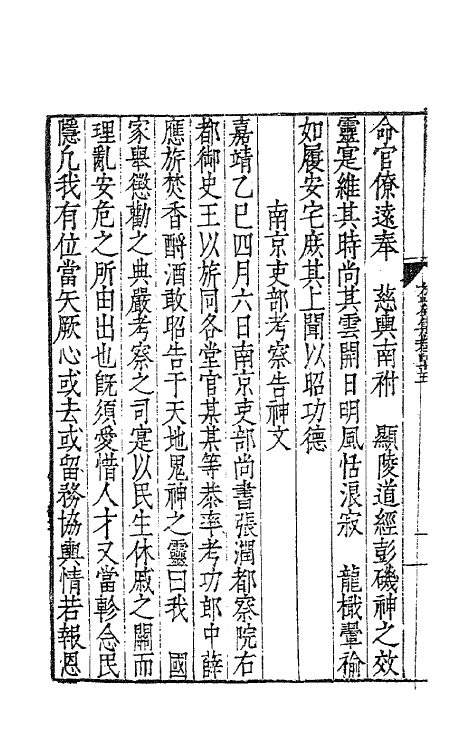 命官僚遠奉　慈輿南祔　顯陵道經彭磯神之效
靈寔維其時尚其雲開日明風恬浪寂　龍檝翬褕
如履安宅庶其上聞以昭功德
南京吏部考察告神文
嘉靖乙巳四月六日南京吏部尚書張潤都察院右
都御史王以旂同各堂官某某等恭率考功郎中薛
應旂焚香酹酒敢昭告于天地鬼神之靈曰我　國
家舉懲勸之典嚴考察之司寔以民生休戚之關而
理亂安危之所由出也旣須愛惜人才又當軫念民
隱凡我有位當矢厥心或去或留務協輿情若報恩